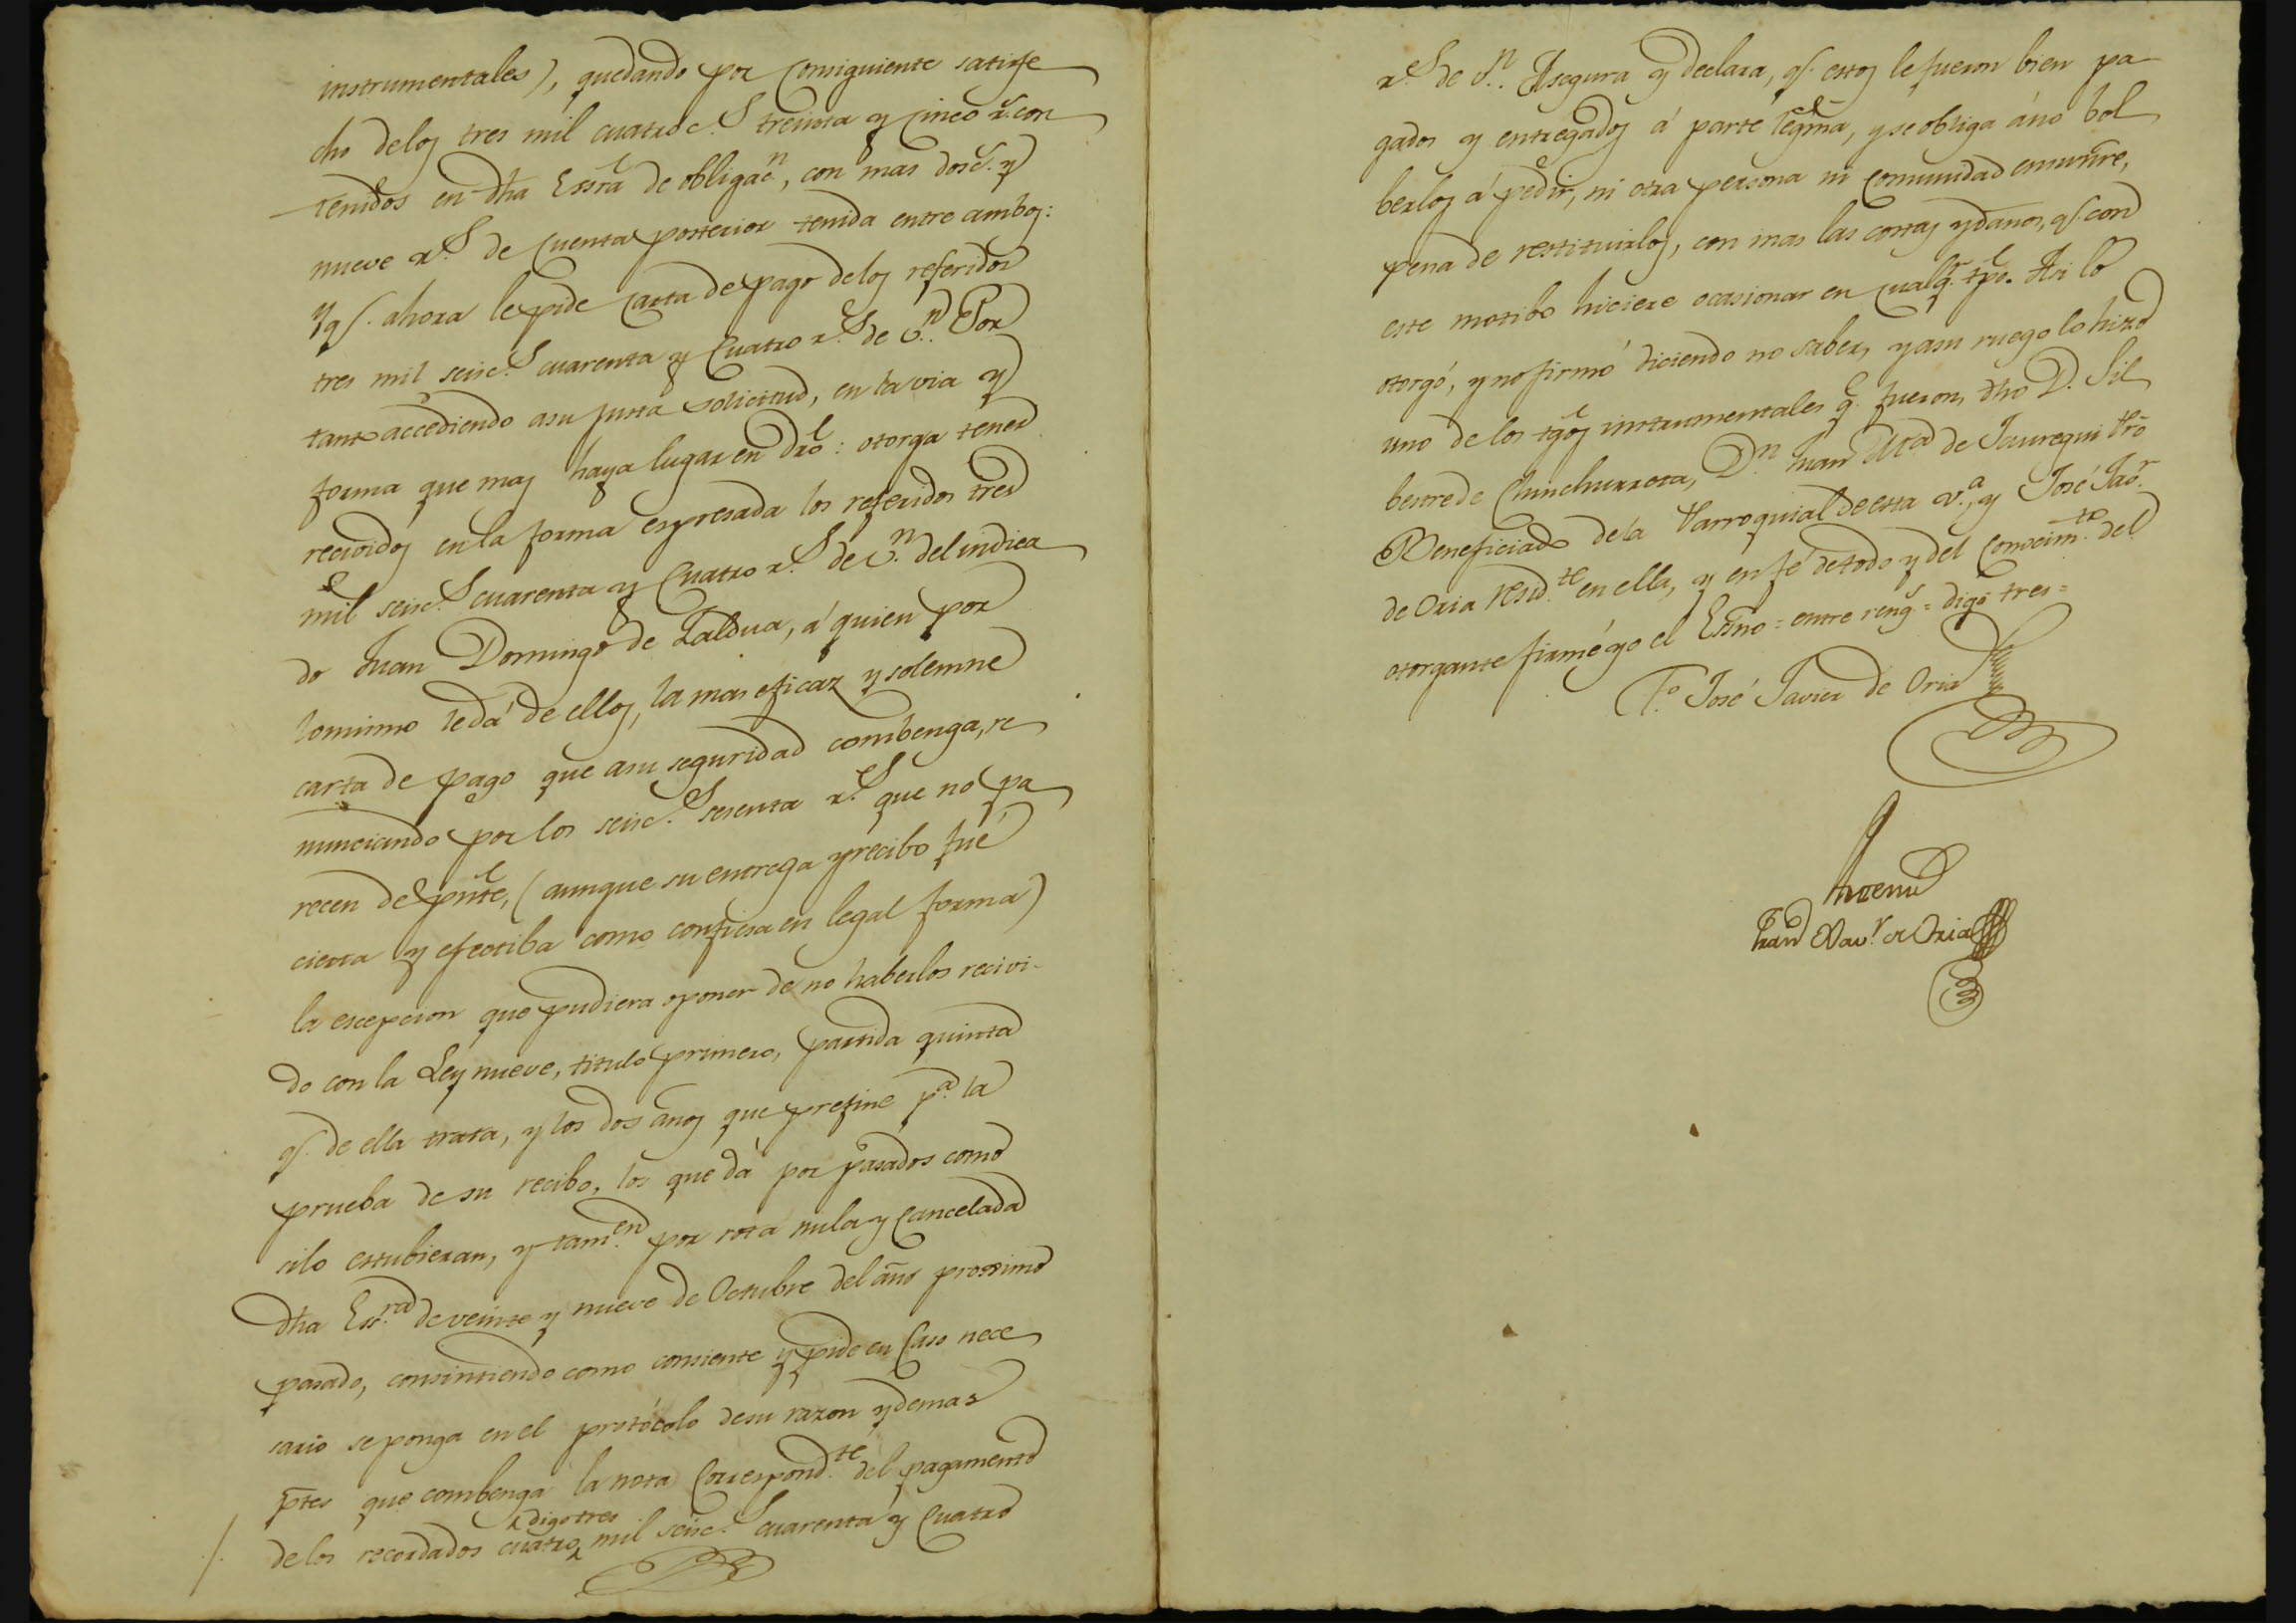 instrumentales), quedando por consiguiente satisfe
cho delos tres mil cuatroc.s treinta y cinco r.s con
tenidos en dha Essra de obligac.n, con mas dosc.s y
nueve r.s de cuenta posterior tenida entre ambos:
Y q.e ahora le pide carta de pago delos referidos
tres mil seisc.s cuarenta y cuatro r.s de v.n Por
tanto accediendo asu justa solicitud, en la via y
forma que mas haya lugar en dro: otorga tener
recividos en la forma espresada los referidos tres
mil seisc.s cuarenta y cuatro r.s de v.n del indica
do Juan Domingo de Zaldua, á quien por
lo mismo le dá de ellos, la mas eficaz y solemne
carta de pago que asu seguridad combenga, re
nunciando por los seisc.s sesenta r.s que no pa
recen de pnte, (aunque su entrega y recibo fué
cierta y efectiba como confiesa en legal forma)
la escepcion que pudiera oponer de no haberlos recivi-
do con la Ley nueve, titulo primero, partida quinta
q.e de ella trata, y los dos años que prefine p.a la
prueba de su recibo, los que dá por pasados como
silo estubieran, y tam.en por rota nula y cancelada
dha Esc.ra de veinte y nueve de Octubre del año prossimo
pasado, consintiendo como consiente y pide en caso nece
sario se ponga en el protócolo desu razon y demas
ptes que combenga la nota correspond.te del pagamento
digo tres
delos recordados cuatro mil seisc.s cuarenta y cuatro
r.s de v.n. Asegura y declara, q.e estos le fueron bien pa
gados y entregados á parte legma, y se obliga áno bol
berlos á pedir, ni otra persona ni comunidad ensunre,
pena de restituirlos, con mas las costas y daños, q.e con
este motibo hiciere ocasionar en cualq.r tpo. Asi lo
otorgó, y no firmó diciendo no saber, y asu ruego lo hizo
uno de los tgos instrumentales q.e fueron, dho D. Sil
bestre de Chinchurreta, D.n Juan Mra de Jauregui
Beneficiado de la Parroquial de esta v.a, y José Jav.r
de Oria resid.te en ella, y en fé de todo y del conocim.to del
otorgante firmé yo el Essno = entre reng.s = digo tres =
T.o José Javier de Oria
Antemi
Juan Xav.r de Oria